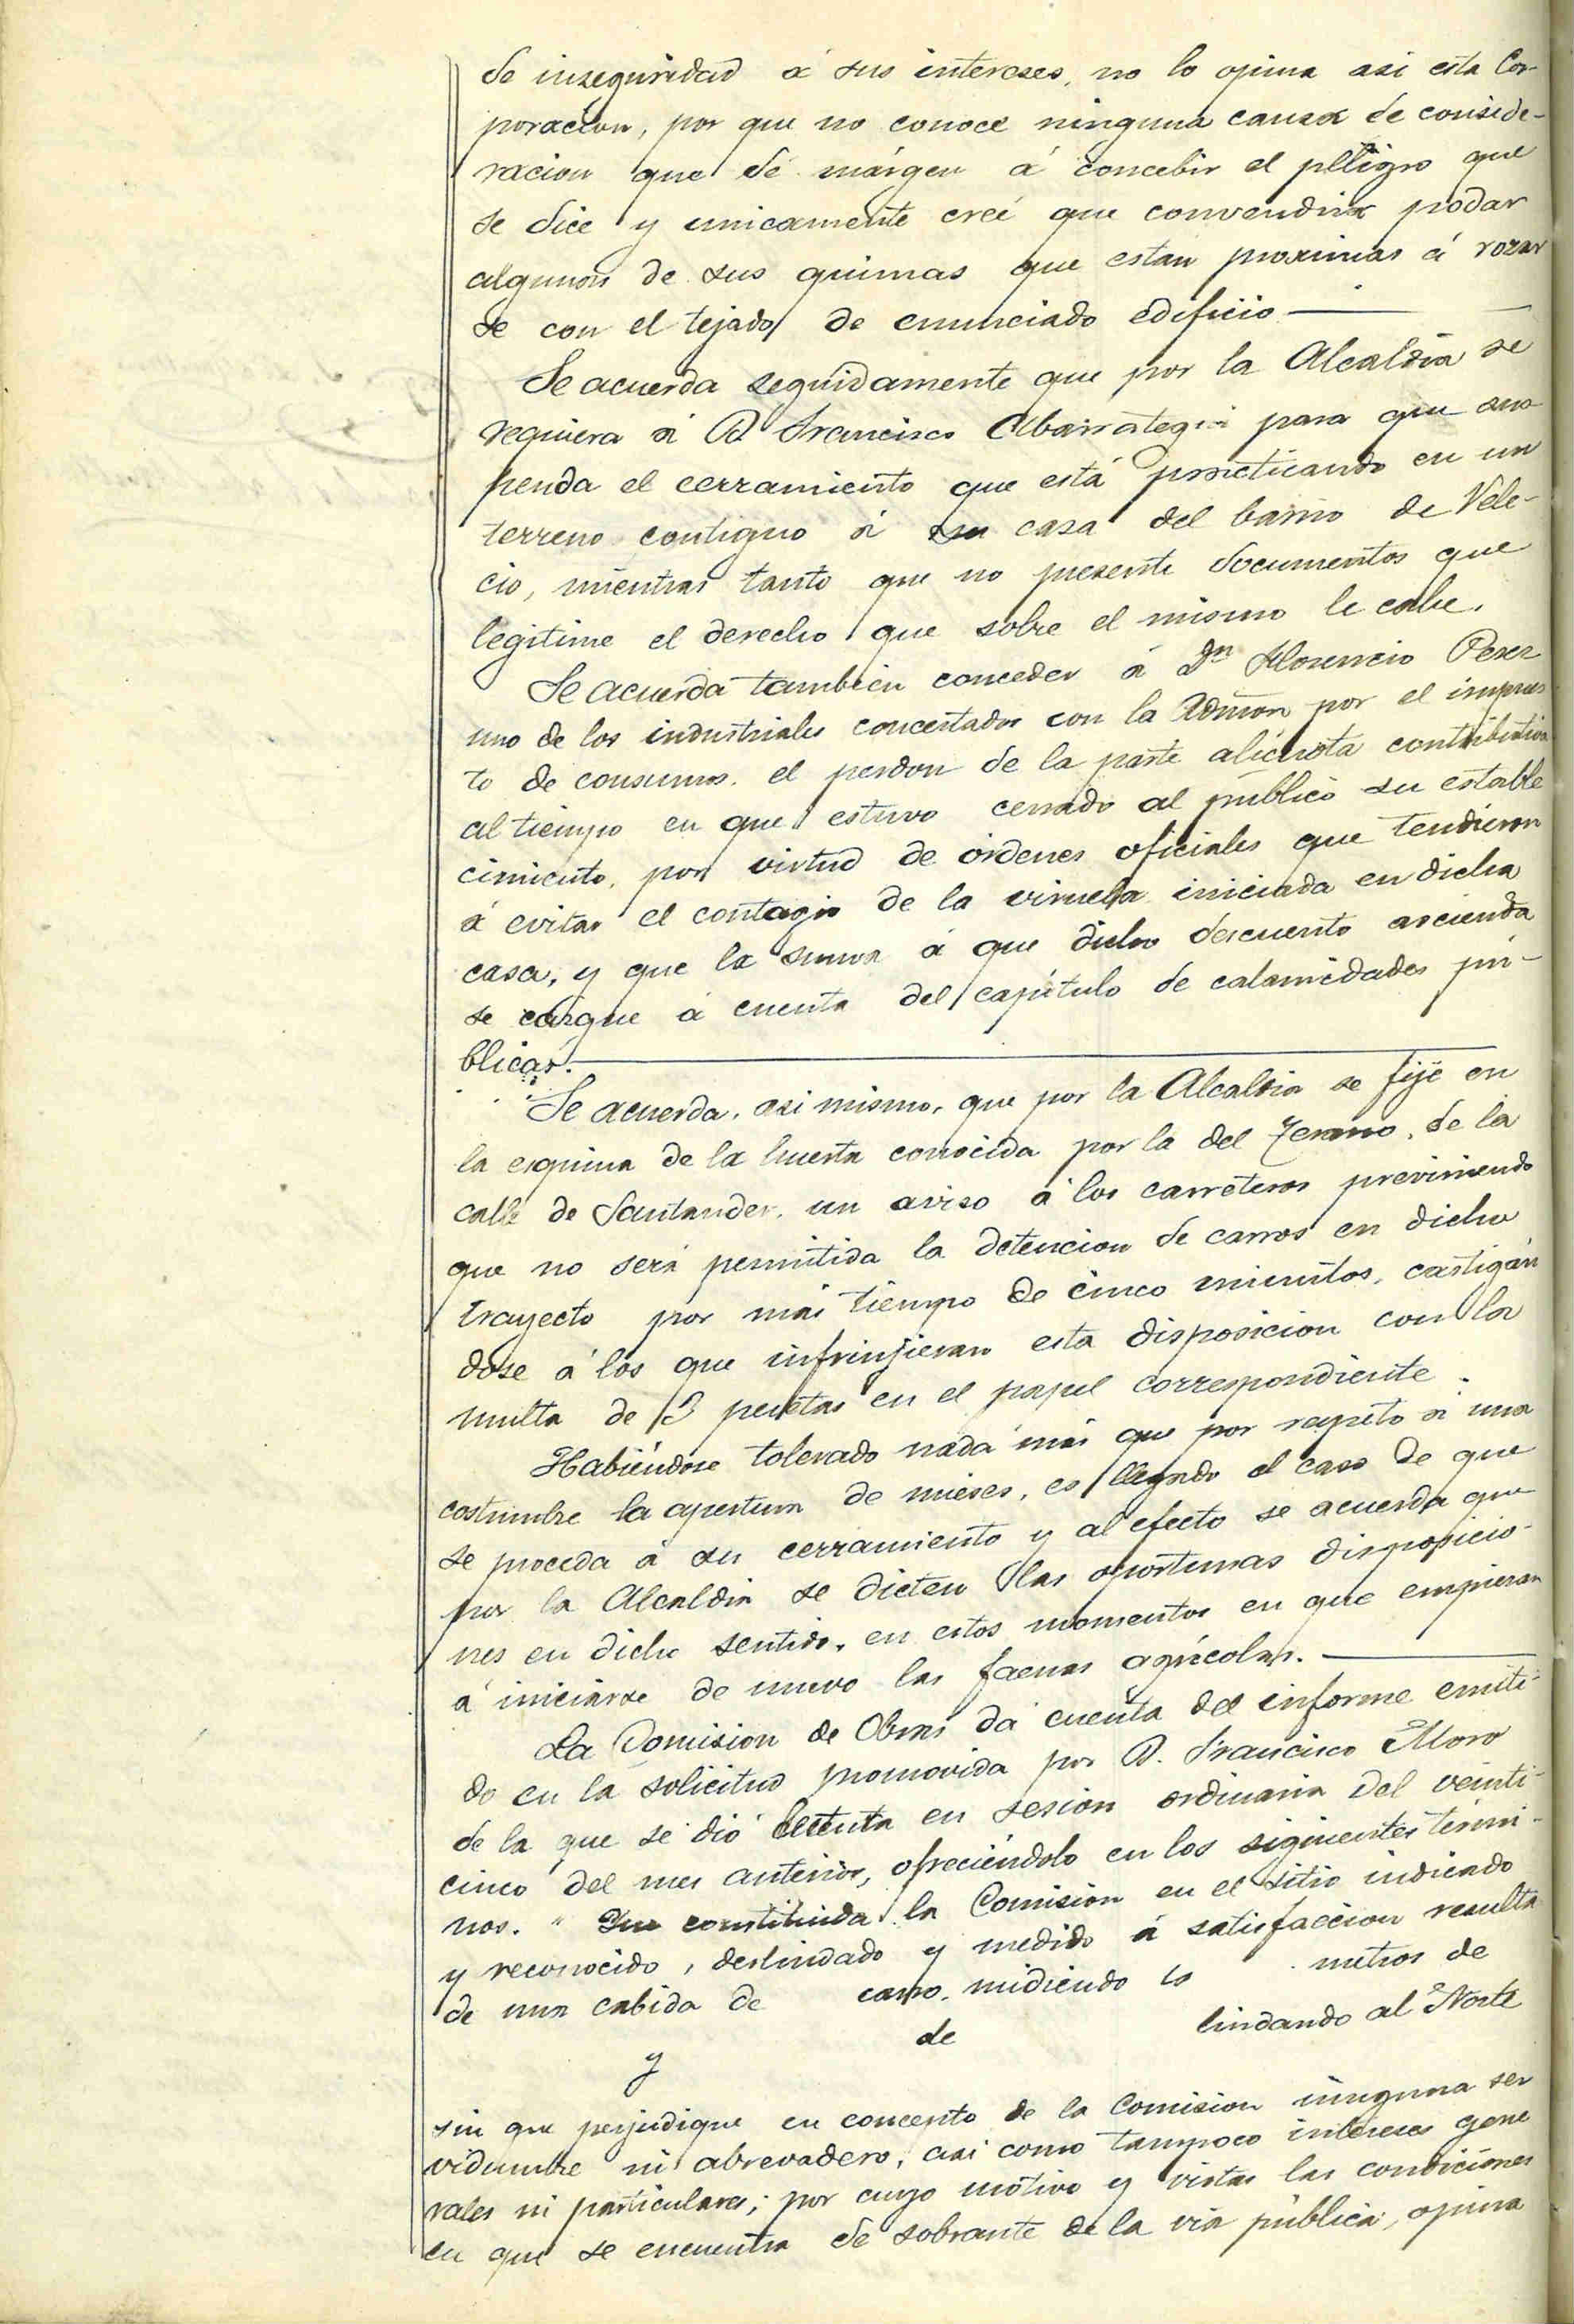 de inseguridad á sus intereses, no lo opina asi esta Cor-
poracion, por que no conoce ninguna causa de conside-
racion que dé márgen á concebir el peligro que
se dice y unicamente creé que convendria podar
algunas de sus quimas que estan proximas á rozar
se con el tejado de enunciado edificio
Se acuerda seguidamente que por la Alcaldia se
requiera á D. Francisco Abarrategui para que sus-
penda el cerramiento que está practicando en un
terreno contiguo á su casa del barrio de Vele-
cio, mientras tanto que no presente documentos que
legitime el derecho que sobre el mismo le cabe.
Se acuerda tambien conceder á Dn Florencio Perez
uno de los industriales concertados con la Admon por el impues
to de consumos, el perdon de la parte alicuota contributiva
al tiempo en que estuvo cerrado al público su estable
cimiento, por virtud de órdenes oficiales que tendieron
á evitar el contagio de la viruela iniciada en dicha
casa, y que la suma á que dicho descuento ascienda
se cargue á cuenta del capitulo de calamidades pú-
blicas.
Se acuerda, asi mismo, que por la Alcaldia se fije en
la esquina de la huerta conocida por la del, de la
calle de Santander, un aviso á los carreteros previniendo
que no será permitida la detencion de carros en dicho
trayecto por más tiempo de cinco minutos, castigán
dose á los que infrinjieran esta disposicion con la
multa de pesetas en el papel correspondiente.
Habiéndose tolerado nada más que por respeto á una
costumbre la apertura de mieses, es llegado el caso de que
se proceda á su cerramiento y al efecto se acuerda que
por la Alcaldia se dicten las oportunas disposicio-
nes en dicho sentido, en estos momentos en que empiezan
á iniciarse de nuevo las faenas agrícolas.
La Comision de Obras dá cuenta del informe emiti-
do en la solicitud promovida por D. Francisco Moro
de la que se dió cuenta en sesion ordinaria del veinti-
cinco del mes anterior, ofreciéndolo en los siguientes térmi-
nos. " constituida la Comision en el sitio indicado
y reconocido, deslindado y medido á satisfaccion resulta
de una cabida de carro, midiendo metros de
de lindando al Norte
y
sin que perjudique en concepto de la Comision ninguna ser
vidumbre ni abrevadero, asi como tampoco intereses gene
rales ni particulares; por cuyo motivo y vistas las condiciones
en que se encuentra de sobrante de la via pública, opina